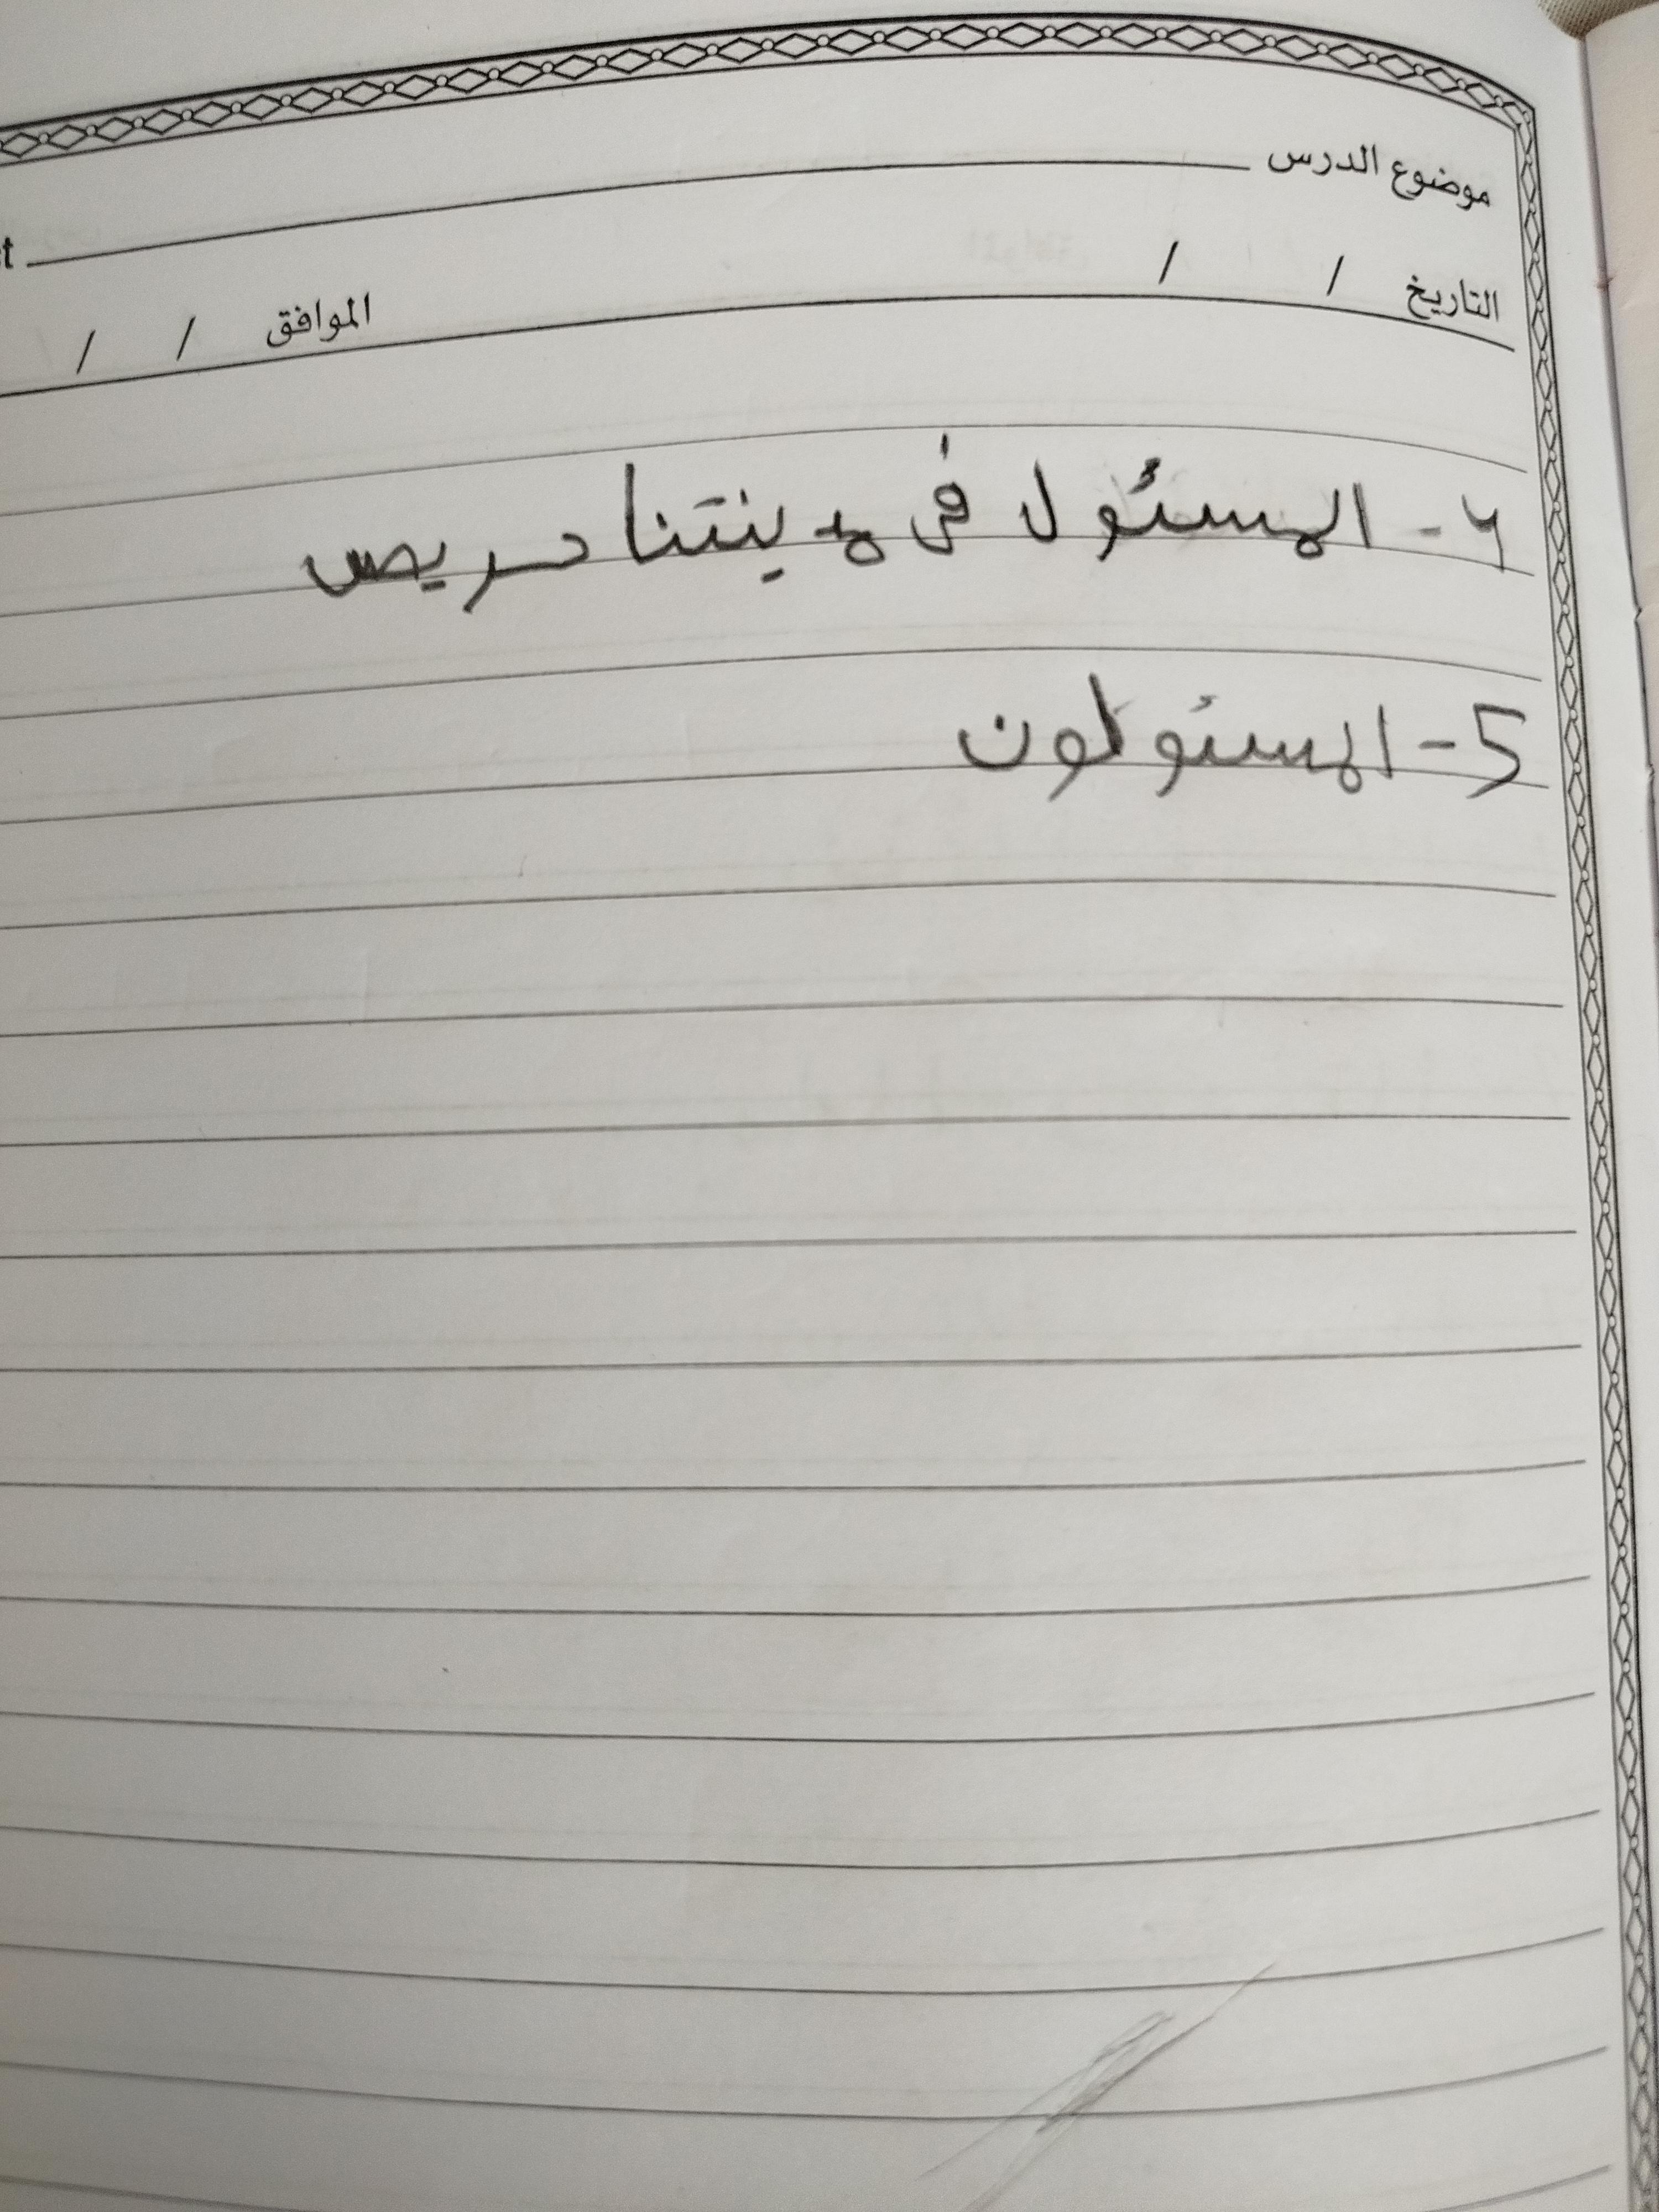 موضوع الدرس
t
التاريخ / /
الموافق / /
4- المسئول فى مدينتنا حريص
5- المسئولون